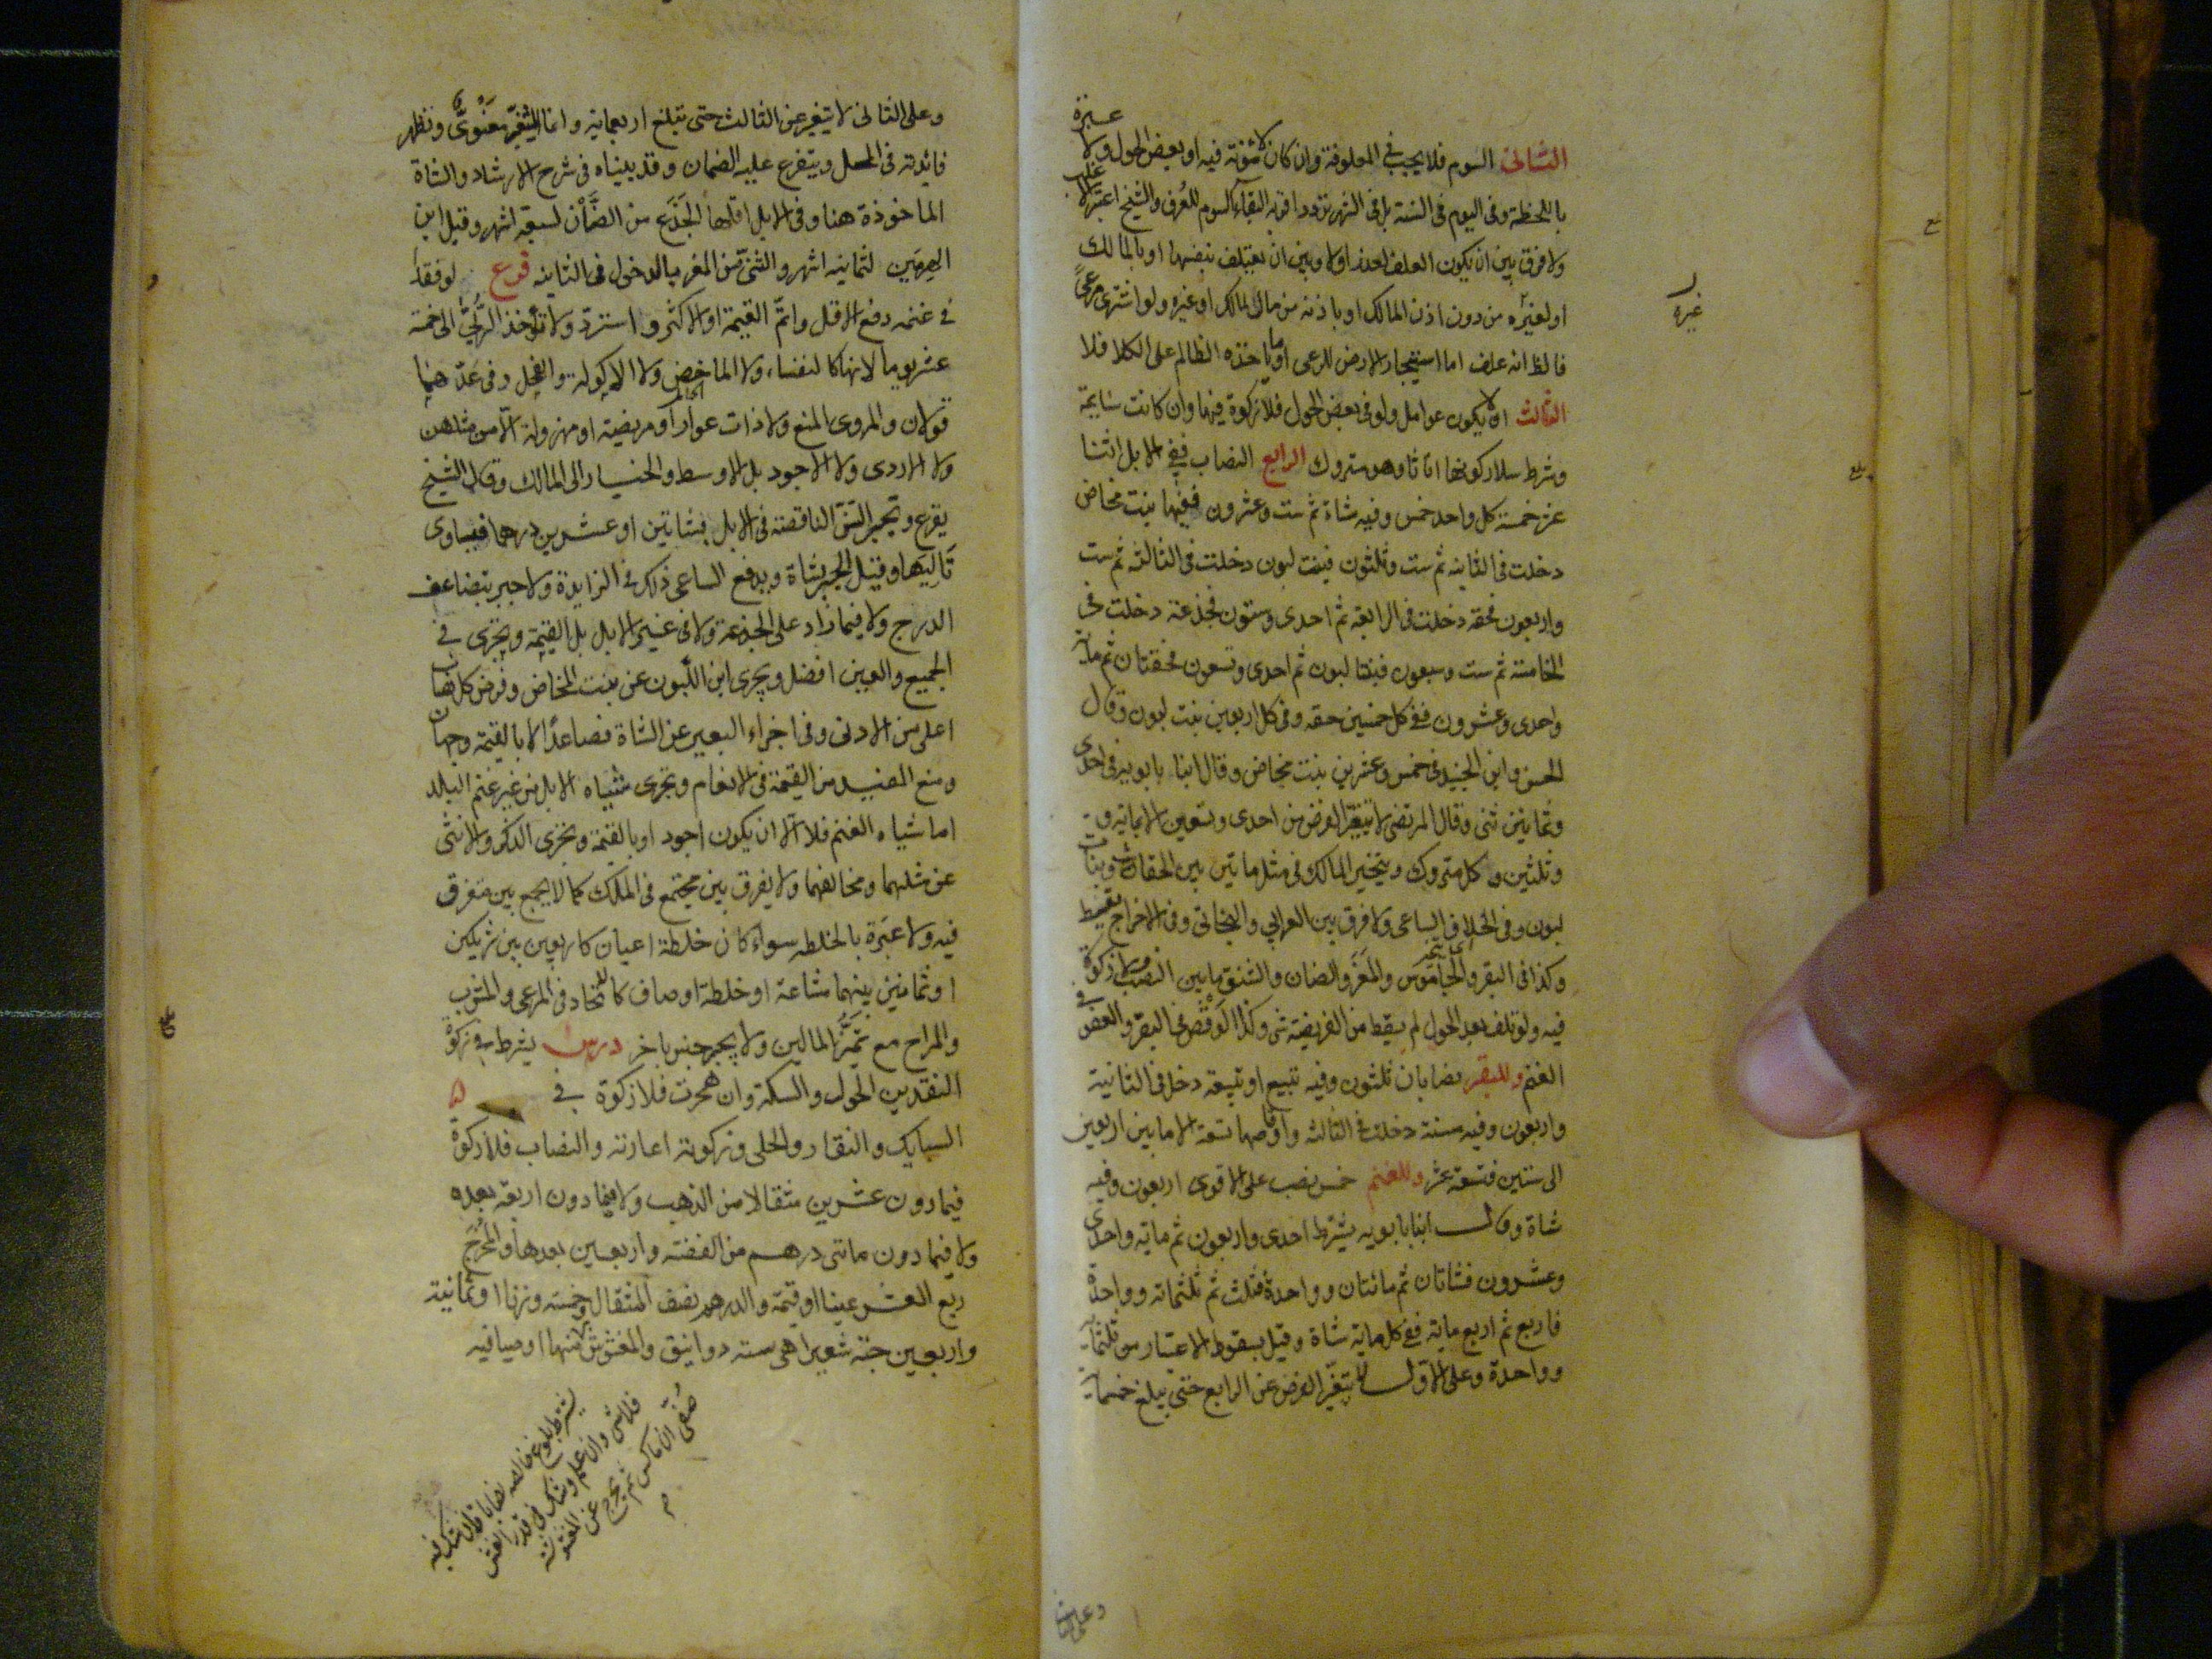 عبرة
الثانى السوم فلا يجب فى المعلوفة وان كان لا مؤنة فيه او بعض الحول ولا
باللحظة وفى اليوم فى السنة بل فى الشهر تردد اقربه بقاء السوم للعرف والشيخ اعتبر الاغلب
ولا فرق بين ان يكون العلف لعذر اولا وبين ان يعتلف بنفسها او بالمالك
او لغيره من دون اذن المالك او باذنه من مال المالك او غيره ولو اشترى مرعى
فالظ انه علف اما استيجار الارض للرعى او ما ياخذه الظالم على الكلا فلا
الثالث ان لا يكون عوامل ولو فى بعض الحول فلا زكوة فيها وان كانت سايمة
وشرط سلار كونها اناثا وهو متروك الرابع النصاب ففى الابل اثنا
عشر خمسة كل واحد خمس وفيه شاة ثم ست وعشرون ففيها بنت مخاض
دخلت فى الثانيه ثم ست وثلثون فبنت لبون دخلت فى الثالثه ثم ست
واربعون فحقه دخلت فى الرابعه ثم احدى وستون فجذعة دخلت فى
الخامسة ثم ست وسبعون فبنتا لبون ثم احدى وتسعون فحقتان ثم مايه
واحدى وعشرون ففى كل خمسين حقه وفى كل اربعين بنت لبون وقال
الحسن وابن الجنيد فى خمس وعشرين بنت مخاض وقال ابنا بابويه فى احدى
وثمانين ثنى وقال المرتضى لا يتغير الفرض من احدى وتسعين الا بمايه و
وثلثين وكل متروك ويتخير المالك فى مثل ماتين بين الحقاق وبنات
لبون وفى الخلاف الساعى ولا فرق بين العرابي والبخاتى وفى الاخراج تقسط
وكذا فى البقر والجاموس والمعز والضان والشنق ما بين النصب ولا زكوة
فيه ولو تلف بعد الحول لم يسقط من الفريضه شى وكذا الوقص فى البقر والعفو فى
الغنم وللبقر نصابان ثلثون وفيه تبيع او تبيعة دخل فى الثانية
واربعون وفيه مسنة دخلت فى الثالثه واوقاصها تسعة الا ما بين اربعين
الى ستين فتسعة عشر وللغنم خمس نصب على الاقوى اربعون وفيه
شاة وقال ابنا بابويه يشترط احدى واربعون ثم مايه واحدى
وعشرون فشاتان ثم مائتان وواحدة فثلث ثم ثلثمائه وواحدة
فاربع ثم اربع مايه ففى كل مايه شاة وقيل بسقوط الاعتبار من ثلثمائه
وواحدة وعلى الاول لا يتغير الفرض عن الرابع حتى يبلغ خمسمايه
وعلى الثانى
غيره
وعلى الثانى لا يتغير عن الثالث حتى تبلغ اربعمايه وانما التغير معنوى وتظهر
فايدته فى المحل ويتفرع عليه الضمان وقد بيناه فى شرح الارشاد والشاة
الماخوذة هنا وفى الابل اقلها الجذع من الضأن لسبعة اشهر وقيل ابن
الهرمين لثمانيه اشهر والثنى من المعز بالدخول فى الثانيه فرع لو فقد
فى غنمه دفع الاقل واتم القيمة او الاكثر واسترد ولا تؤخذ الربى الى خمسة
عشر يوما لانها كالنفساء ولا الماخض ولا الاكولة والفحل وفى عدهما
قولان والمروى المنع ولا ذات عوار او مريضة او مهزولة الا من مثلهن
ولا الاردى ولا الاجود بل الاوسط والخيار الى المالك وقال الشيخ
يقرع وتجبر السن الناقصة فى الابل بشاتين او عشرين درهما فيساوى
تاليها وقيل الجبر بشاة ويدفع الساعى ذلك فى الزايدة ولا جبر بتضاعف
الدرج ولا فيما زاد على الجذعة ولا فى غير الابل بل القيمة ويجزى فى
الجميع والعين افضل ويجزى ابن اللبون عن بنت المخاض وفرض كل نصاب
اعلى من الادنى وفى اجزاء البعير عن الشاة فصاعدا لا بالقيمة وجهان
ومنع المفيد من القيمة فى الانعام وتجزى شياه الابل من غير غنم البلد
اما شياه الغنم فلا الا ان يكون اجود او بالقيمة ويجزى الذكر والانثى
عن مثلهما ومخالفهما ولا يفرق بين مجتمع فى الملك كما لا يجمع بين متفرق
فيه ولا عبرة بالخلطه سواء كان خلطة اعيان كاربعين بين شريكين
او ثمانين بينهما مشاعة او خلطة اوصاف كالاتحاد فى المرعى والمشرب
والمراح مع تميز المالين ولا يجبر جنس باخر درس يشترط فى زكوة
النقدين الحول والسكة وان هجرت فلا زكوة فى
السبايك والنقار والحلى وزكوته اعارته والنصاب فلا زكوة
فيما دون عشرين مثقالا من الذهب ولا فيما دون اربعه بعده
ولا فيما دون ماتى درهم من الفضه واربعين بعدها والمخرج
ربع العشر عينا او قيمة والدرهم نصف المثقال وخمسه وزنا او ثمانية
واربعين حبة شعيرا هى سته دوانيق والمغشوش منهما او صافيه
يشترط بلوغ خالصه نصابا فان شك فيه
فلا شى وان علم وشك فى قدر الغش
صفى ان ماكس ثم يخرج عن المغشوشة